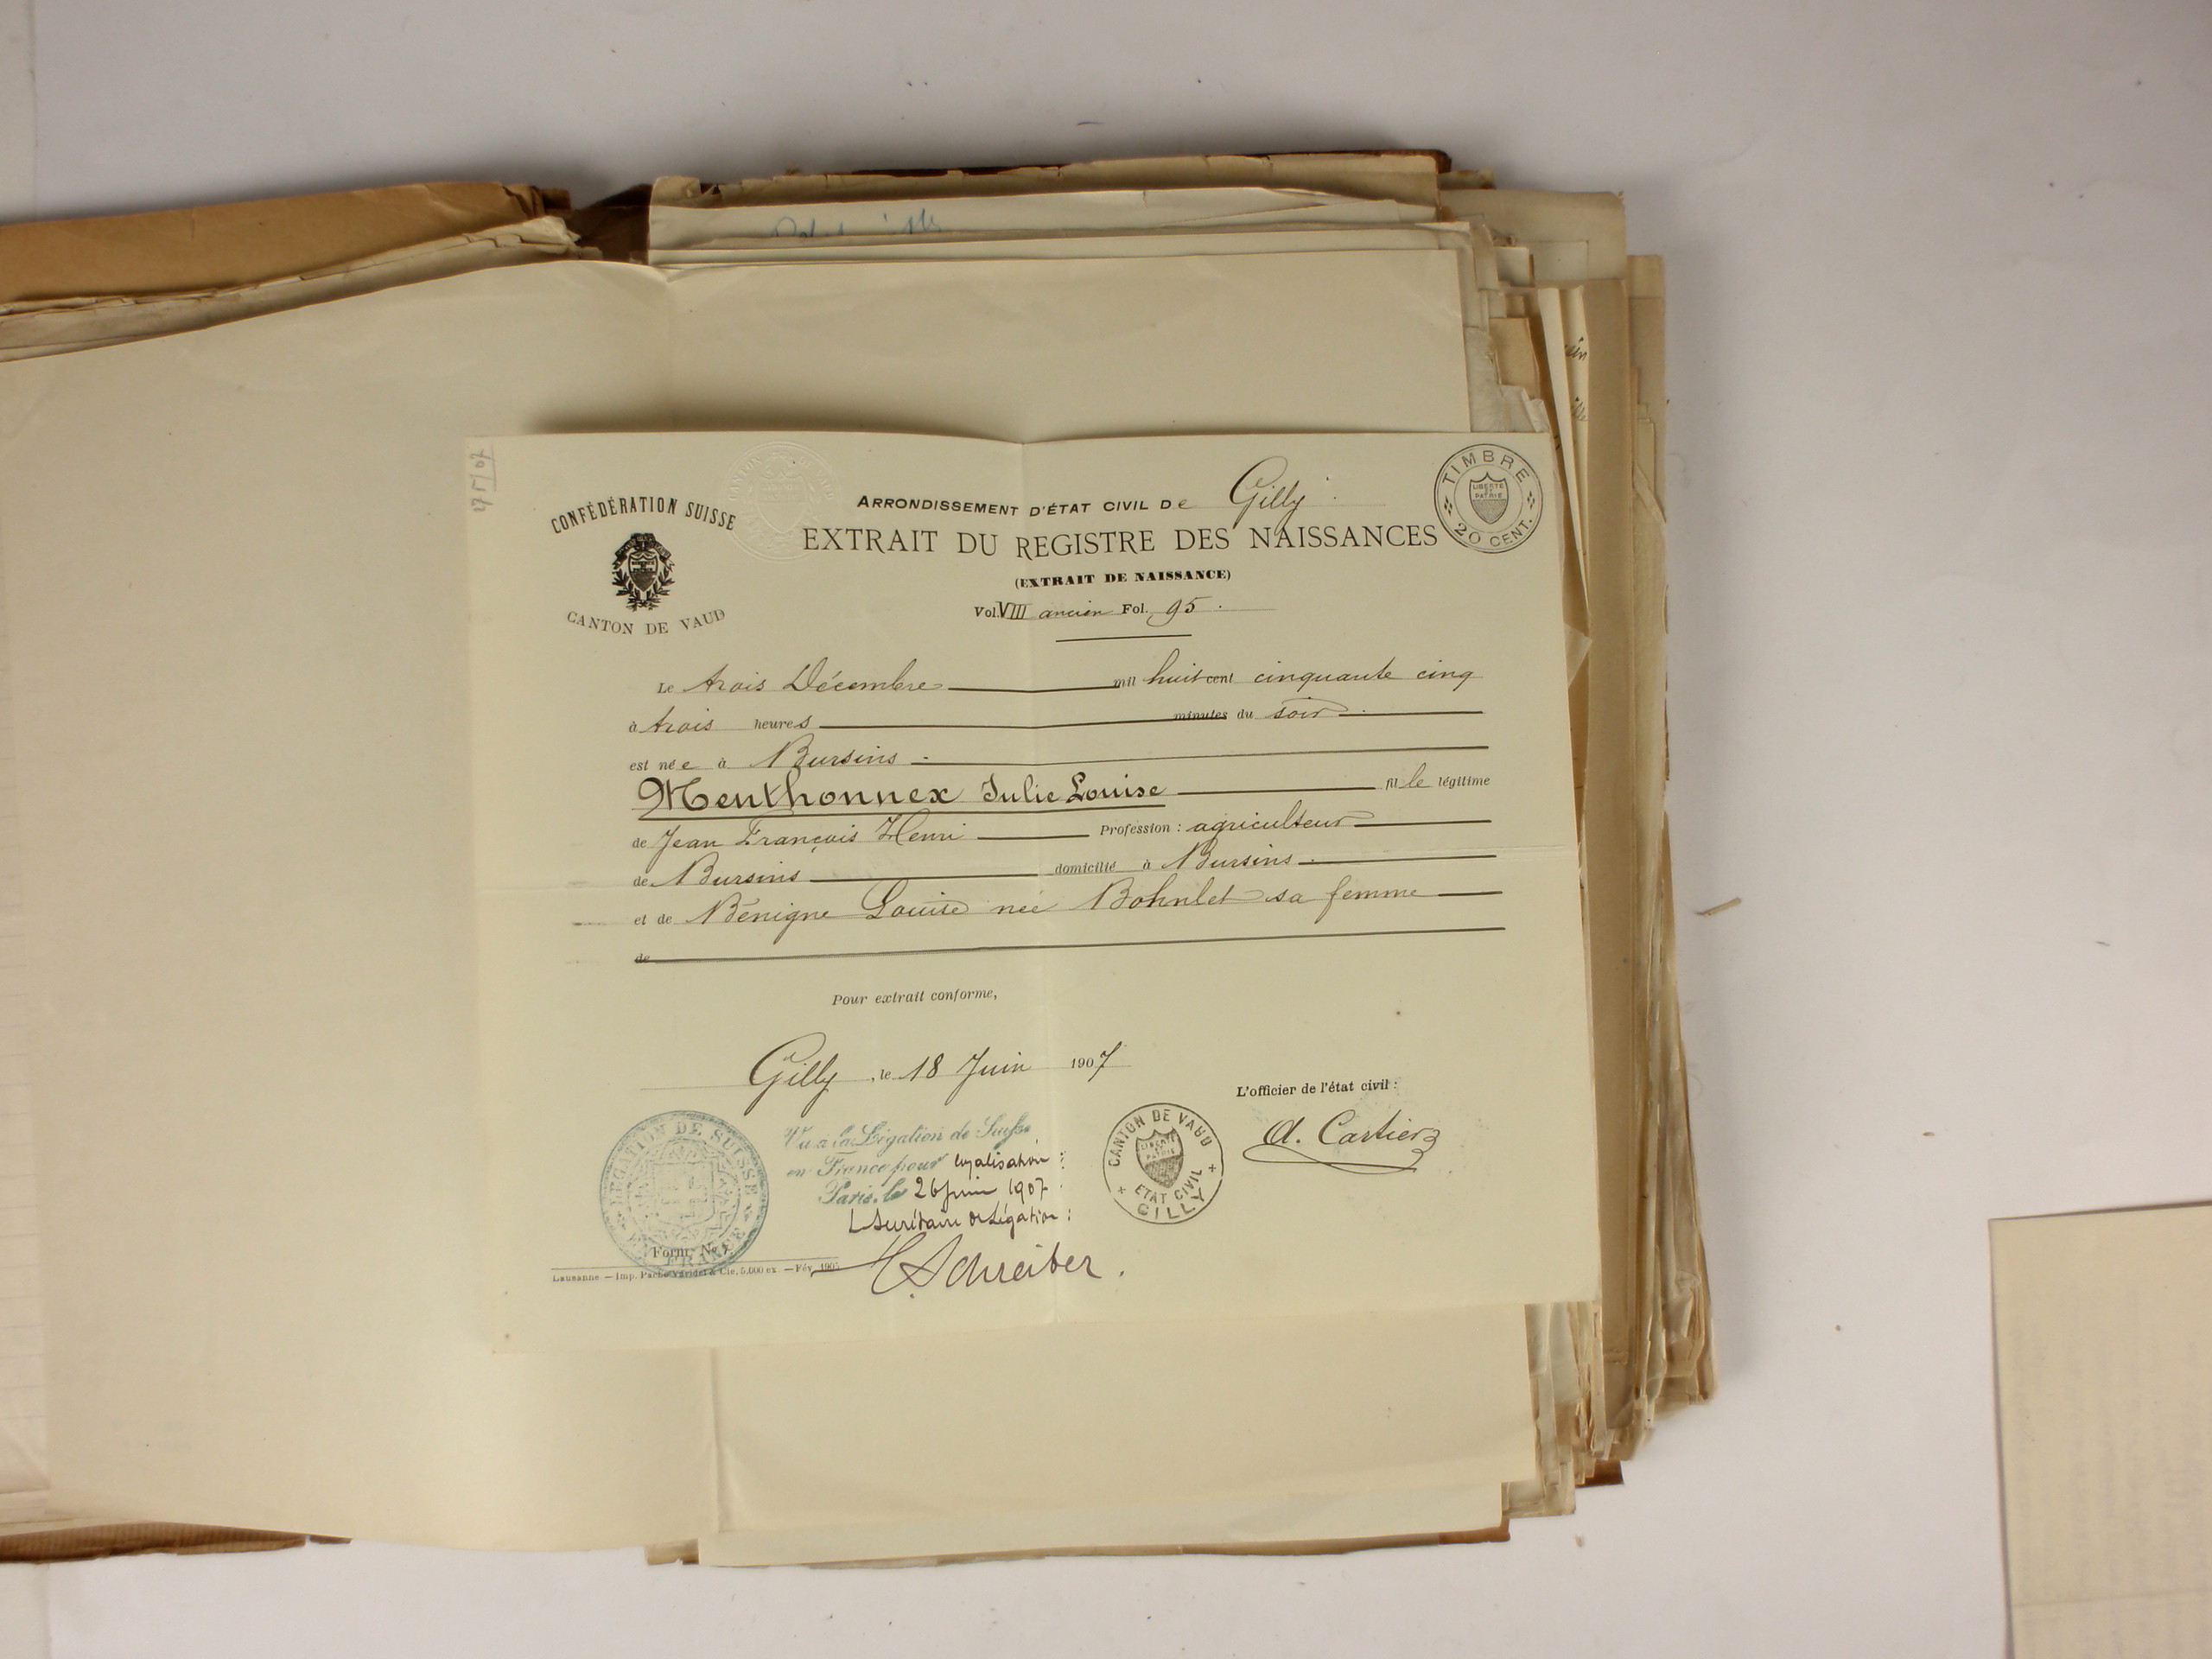 CONFÉDÉRATION SUISSE
CANTON DE VAUD
ARRONDISSEMENT D'ÉTAT CIVIL De Gilly
TIMBRE
LIBERTÉ ET PATRIE
20 CENT.
EXTRAIT DU REGISTRE DES NAISSANCES
(EXTRAIT DE NAISSANCE)
Vol. VIII ancien Fol. 95.
Le trois Décembre mil huit cent cinquante cinq
à trois heures minutes du soir
est née à Bursins
Menthonnex Julie Louise fille légitime
de Jean François Henri Profession : agriculteur
de Bursins domicilié à Bursins
et de Bénigne Louise née Bohnlet sa femme
de
Pour extrait conforme,
Gilly, le 18 Juin 1907
L'officier de l'état civil :
A. Cartier
CANTON DE VAUD
LIBERTÉ ET PATRIE
ETAT CIVIL
GILLY
LÉGATION DE SUISSE
EN FRANCE
Vu à la Légation de Suisse
en France pour légalisation :
Paris, le 26 juin 1907.
L Secrétaire de Légation :
Schreiber.
Form. No
Lausanne — Imp. Pache-Varidel & Cie, 5,000 ex — Fév. 190